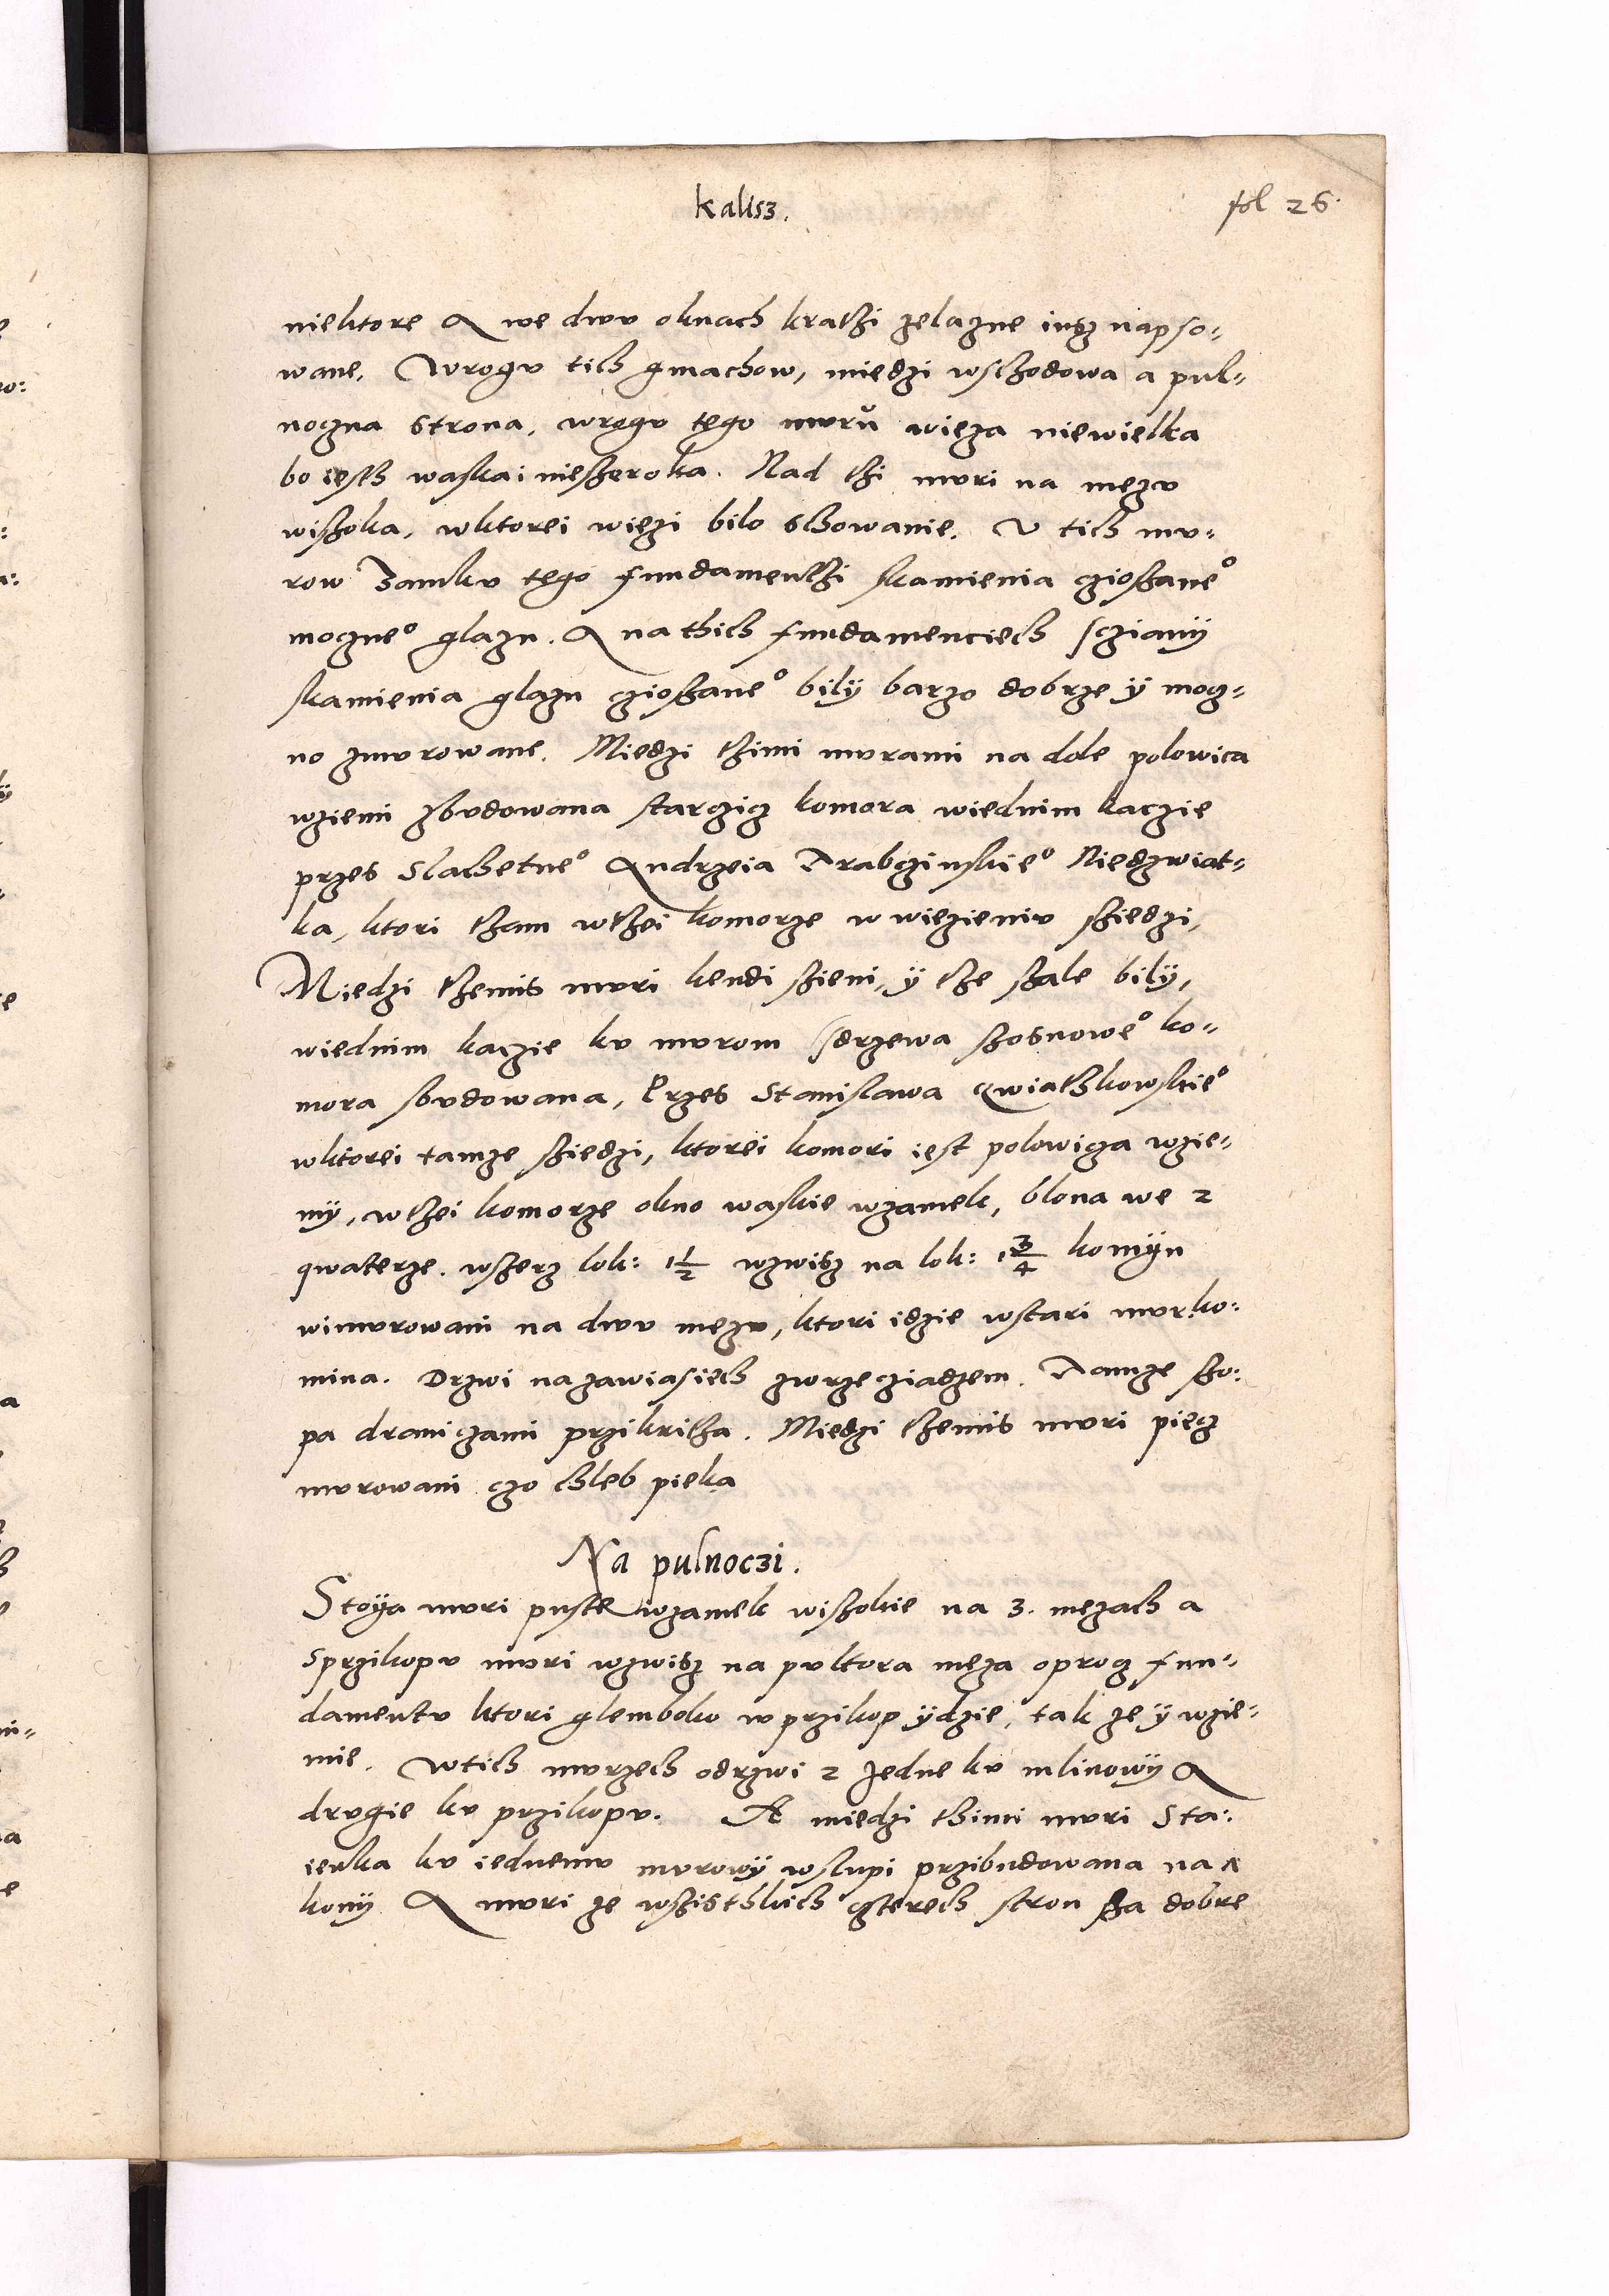 kalisz.
fol 26.
niektore A we dwu oknach krathi zelazne iusz napso-
wane. Wrogu tich gmachow, miedzi wschodowa a pul-
noczna strona, wrogu tego muru wieza niewielka
bo iesth waska i nieszeroka. Nad thi muri na mezu
wisoka, wktorei wiezi bilo chowanie. U tich mu-
row Zamku tego fundamenthi skamienia cziosane°
moczne° glazu. A na thich fundamenciech scziany
skamienia glazu cziosane° bily barzo dobrze y mocz-
no zmurowane. Miedzi thimi murami na dole polowica
wziemi zbudowana starczicz komora wiednim kaczie
przes Slachetne° Andrzeia Drabczinskie° Niedzwiat-
ka, ktori tham wthei komorze w wiezieniu siedzi,
Miedzi themis muri kendi sieni, y the sale bily,
wiednim kaczie ku murom sdrzewa sosnowe° ko-
mora sbudowana, Przes Stanislawa Qwiathkowskie°
wktorei tamze siedzi, ktorei komori iest polowicza wzie-
my, wthei komorze okno waskie wzamek, blona we 2
qwaterze. wszerz lok: 1 1/2 wzwisz na lok: 1 3/4 komyn
wimurowani na dwu mezu, ktori idzie wstari mur ko:
mina. Drzwi na zawiasiech zwrzecziadzem. Tamze szo:
pa draniczami przikritha. Miedzi themis muri piecz
murowani czo chleb pieka
Na pulnoczi.
Stoya muri puste wzamek wisokie na 3. mezach a
sprzikopu muri wzwisz na pultora meza oprocz fun-
damentu ktori glemboko w przikop ydzie, tak ze y wzie-
mie. Wtich murzech odrzwi 2 Jedne ku mlinowy A
drugie ku przikopu. A miedzi thimi muri Sta:
ienka ku iednemu murowy wslupi przibudowana na
kony A muri ze wsisthkich czterech stron sa dobre